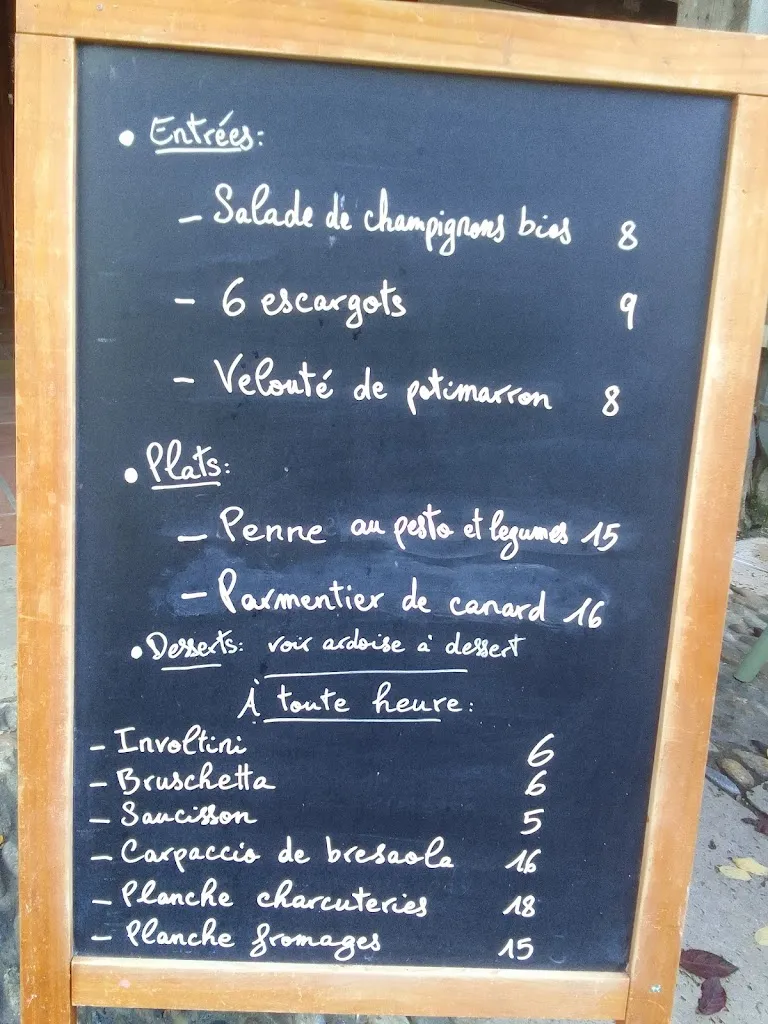 • Entrées:
- Salade de champignons bios 8
- 6 escargots 9
- Velouté de potimarron 8
• Plats:
- Penne au pesto et legumes 15
- Parmentier de canard 16
• Desserts: voir ardoise à dessert
À toute heure:
- Involtini 6
- Bruschetta 6
- Saucisson 5
- Carpaccio de bresaola 16
- Planche charcuteries 18
- Planche fromages 15